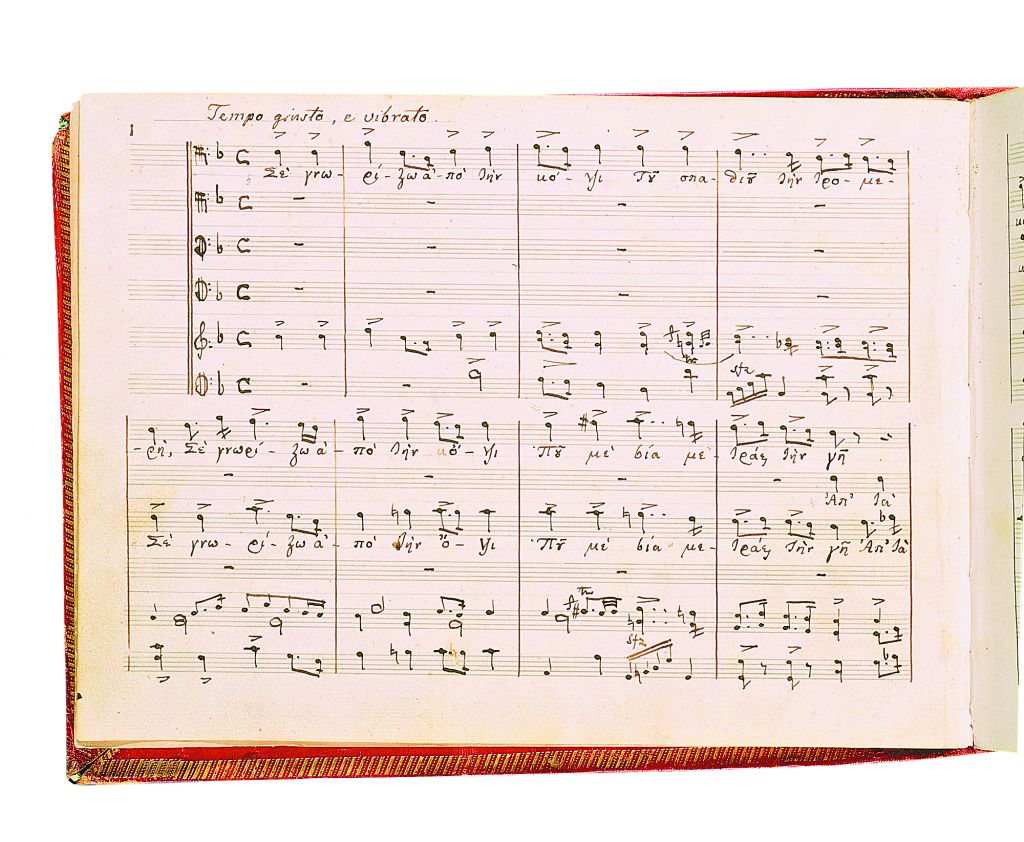 1
Tempo giusto, e vibrato.
Σὲ γνω- ρί- ζω ἀ- πὸ τὴν κό- ψι Τοῦ σπα- θιοῦ τὴν τρο- με-
-ρή, Σὲ γνωρί- ζω ἀ- πὸ τὴν κό- ψι Ποῦ μὲ βία με- τράει τὴν γῆ
Ἀπ' τὰ
Σὲ γνω- ρί- ζω ἀ- πὸ τὴν ὄ- ψι Ποῦ μὲ βία με- τράει τὴν γῆ Ἀπ' τὰ